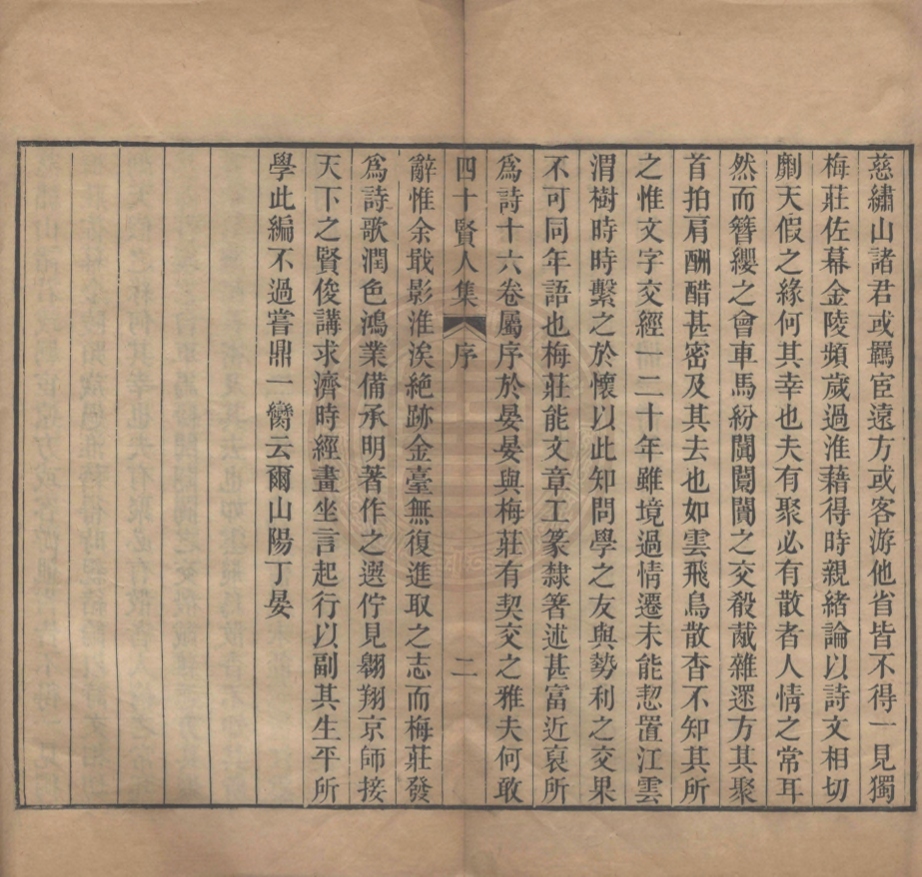 慈繡山諸君或羈宦遠方或客游他省皆不得一見獨
梅莊佐幕金陵頻歲過淮藉得時親緒論以詩文相切
劘天假之緣何其幸也夫有聚必有散者人情之常耳
然而簪纓之會車馬紛闐闤闠之交殽胾雜遝方其聚
首拍肩酬醋甚密及其去也如雲飛鳥散杳不知其所
之惟文字交經一二十年雖境過情遷未能恝置江雲
渭樹時時繫之於懷以此知問學之友與勢利之交果
不可同年語也梅莊能文章工篆隸箸述甚富近裒所
爲詩十六卷屬序於晏晏與梅莊有契交之雅夫何敢
四十賢人集 序 二
辭惟余戢影淮涘絶跡金臺無復進取之志而梅莊發
爲詩歌潤色鴻業備承明著作之選佇見翺翔京師接
天下之賢俊講求濟時經畫坐言起行以副其生平所
學此編不過嘗鼎一臠云爾山陽丁晏